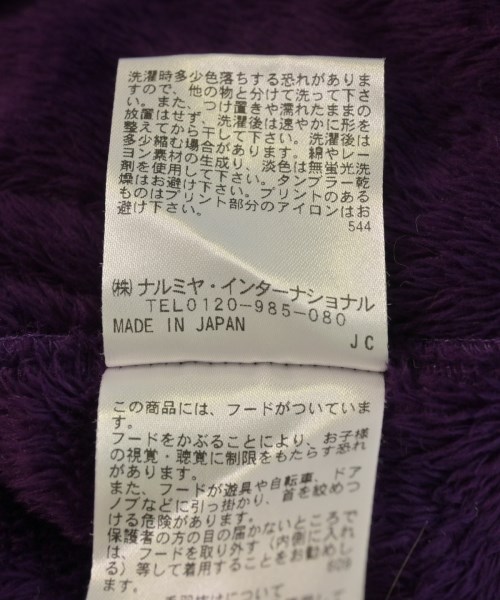 洗濯時多少色落ちする恐れがありま
すので、他の物と分けて洗って下さ
い。また、つけ置きや濡れたままの
放置はせず、洗濯後は速やかに形を
整えてから干して下さい。洗濯後は
多少縮む場合があります。綿やレー
ヨン素材の生成り、淡色は無蛍光洗
剤を使用して下さい。タンブラー乾
燥はお避け下さい。プリントのある
ものはプリント部分のアイロンはお
避け下さい。
544
㈱ナルミヤ・インターナショナル
TEL0120-985-080
MADE IN JAPAN
JC
この商品には、フードがついていま
す。
フードをかぶることにより、お子様
の視覚・聴覚に制限をもたらす恐れ
があります。
また、フードが遊具や自転車、ドア
ノブなどに引っ掛かり、首を絞めつ
ける危険があります。
保護者の方の目の届かないところで
は、フードを取り外す（内側に入れ
る）等して着用することをお勧めし
ます。
609